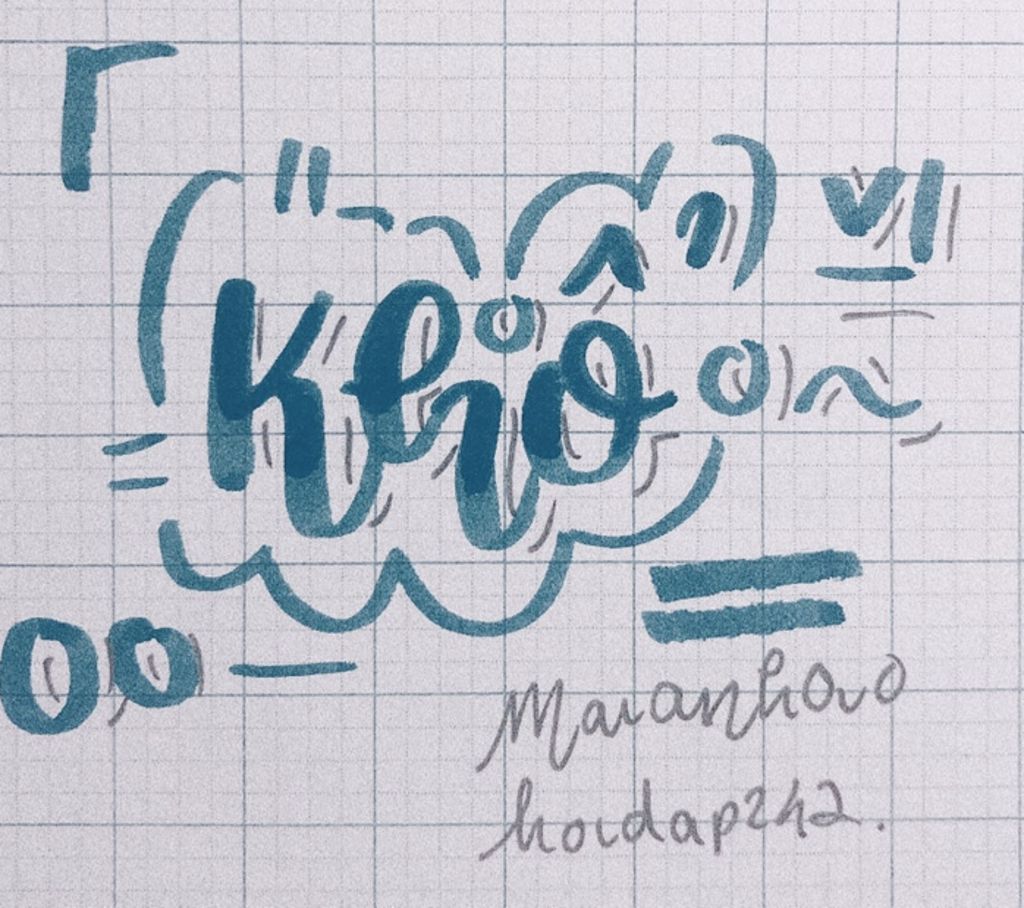 Khô
Maianhovo
hoidap247.